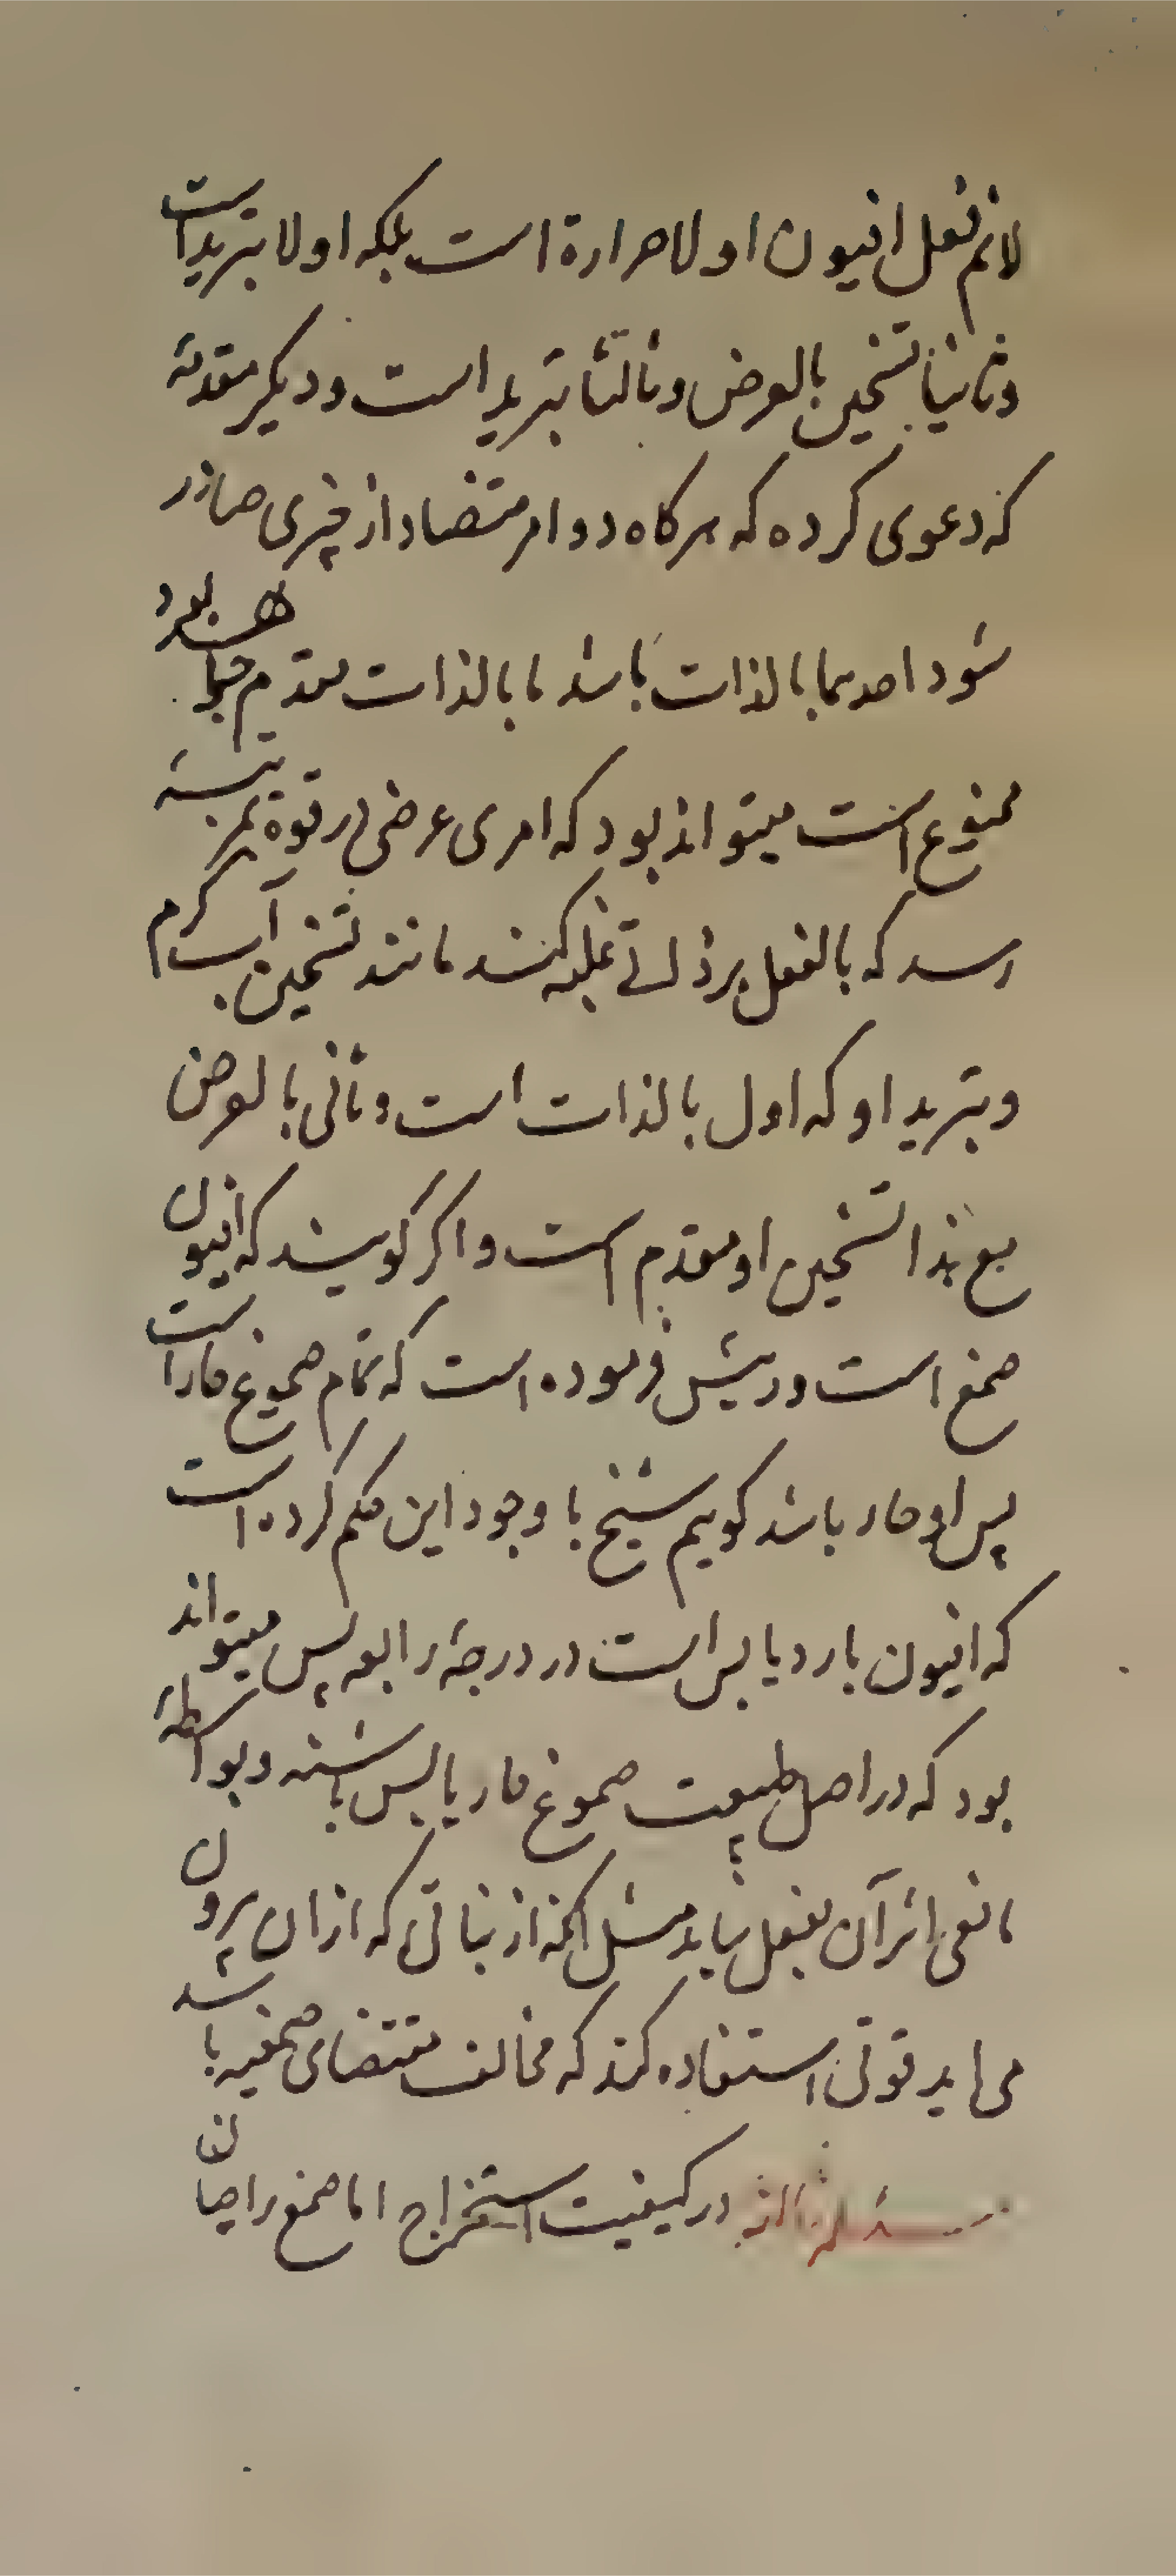 لانم فعل افیون اولا حرارة است بلکه اولا تبرید است
وثانیا تسخین بالعرض وثالثا تبرید است ودیکر مقدمهٔ
که دعوی کرده که هرکاه دو امر متضاد از چیزی صادر
شود احدیهما بالذات باشد ما بالذات مقدم خواهد بود
ممنوع است میتواند بود که امری عرضی در قوة بمرتبهٔ
رسد که بالفعل بر ذاتی غلبه کند مانند تسخین آب کرم
وتبرید او که اول بالذات است وثانی بالعرض
مع هذا تسخین او مقدم است واکر کویند که افیون
صمغ است ودر پیش فرموده است که تمام صموغ حار است
پس او حار باشد کوییم شیخ با وجود این حکم کرده است
که افیون بارد یابس است در درجهٔ رابعه پس میتواند
بود که در اصل طبیعت صموغ حار یابس باشند وبواسطهٔ
مانعی اثر آن بفعل نیاید مثل آنکه از نباتی که ازان بیرون
می اید قوتی استفاده کند که مخالف مقتضای صمغیه باشد
مسئله ثالثه در کیفیت استخراج اما صمغ را چنان